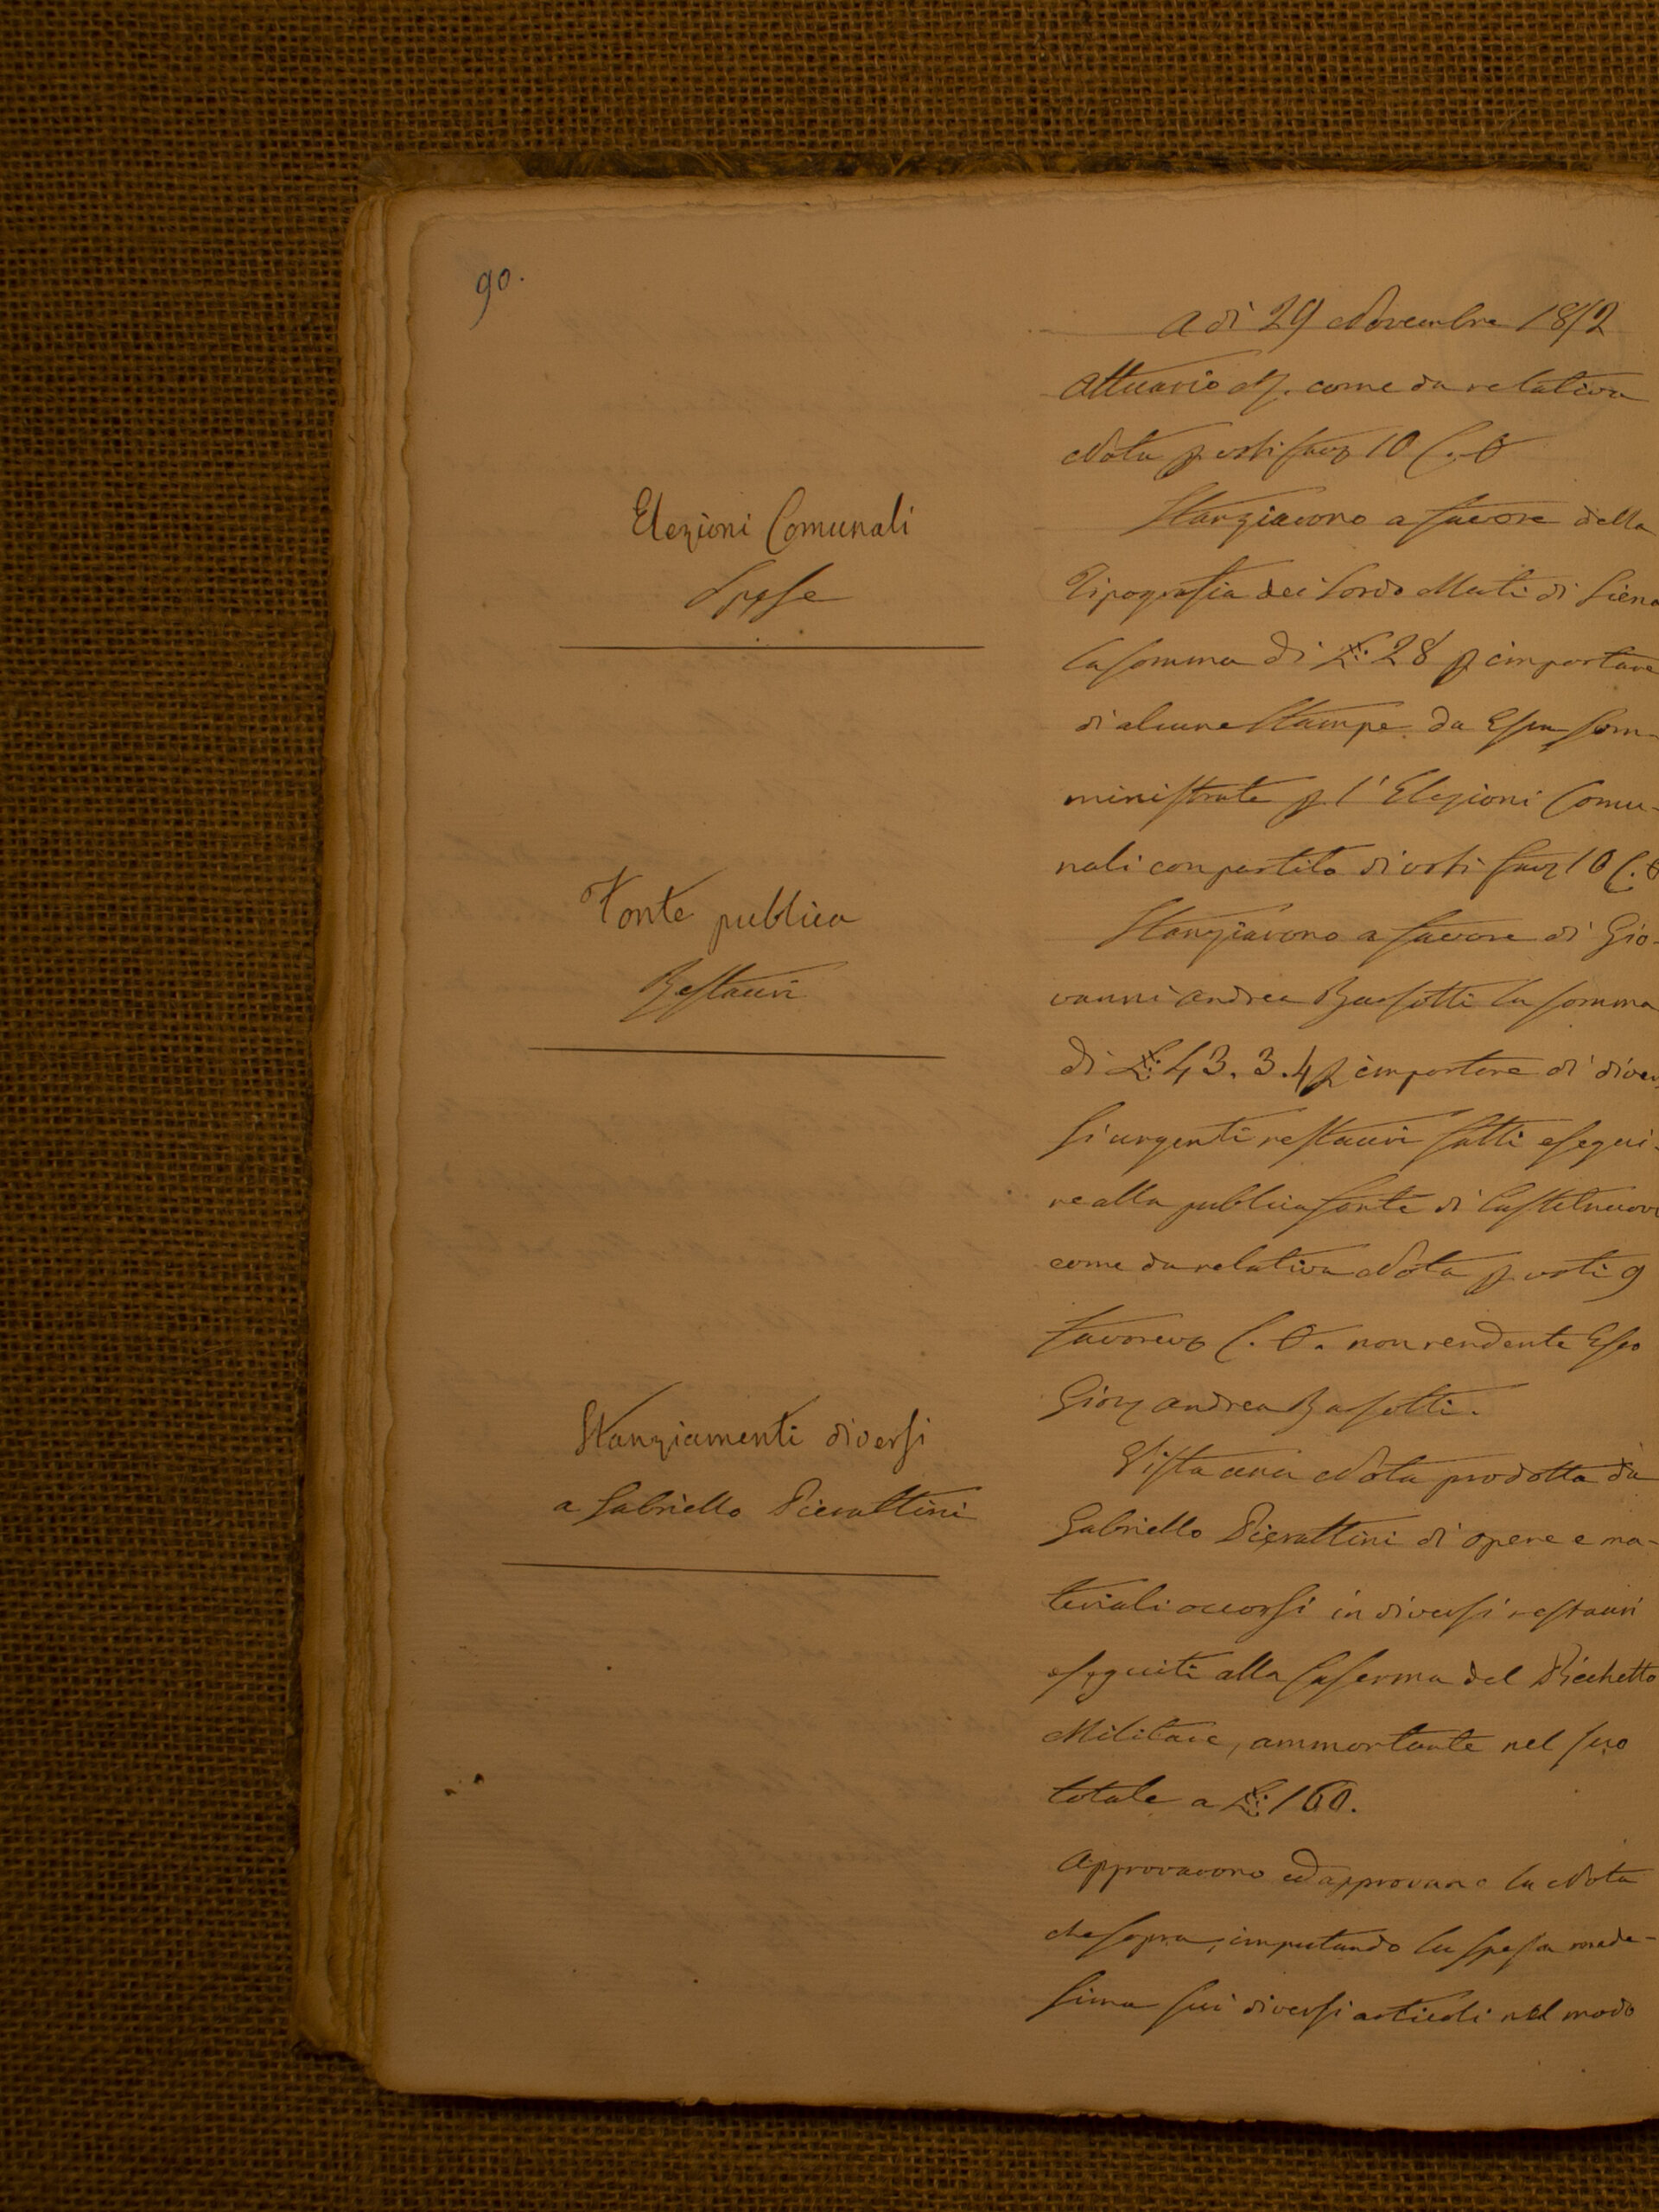 90.
A dì 29 Novembre 1852
Attuario Nz. come da relativa
Nota p voti favz 10 C. 0
Elezioni Comunali
Spese
Stanziarono a favore della
Tipografia dei Sordo Muti di Siena
la somma di £: 28 p importare
di alcune Stampe da Essa som-
ministrate p l'Elezioni Comu-
nali con partito di voti favz 10 C. 0
Fonte publica
Restauri
Stanziarono a favore di Gio-
vanni Andrea Bassotti la somma
di £: 43. 3. 4 p importare di diver
si urgenti restauri fatti esegui-
re alla publica fonte di Castelnuovo
come da relativa Nota p voti 9
favorevz C. 0. non rendente Esso
Giovz Andrea Bassotti.
Stanziamenti diversi
a Gabriello Pierattini
Vista una Nota prodotta da
Gabriello Pierattini di opere e ma-
teriali occorsi in diversi restauri
eseguiti alla Caserma del Picchetto
Militare, ammontante nel suo
totale a £: 160.
Approvarono ed approvano la Nota
che sopra, imputando la spesa mede-
sima sui diversi articoli nel modo